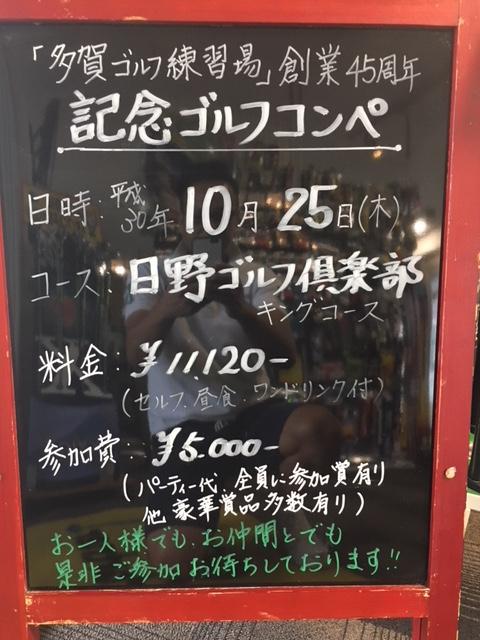 「多賀ゴルフ練習場」創業45周年
記念ゴルフコンペ
日時:平成30年10月25日(木)
コース:日野ゴルフ倶楽部
キングコース
料金:¥11,120-
(セルフ、昼食、ワンドリンク付)
参加費:¥5.000-
(パーティー代、全員に参加賞有り
他豪華賞品多数有り)
お一人様でも、お仲間とでも
是非ご参加お待ちしております!!